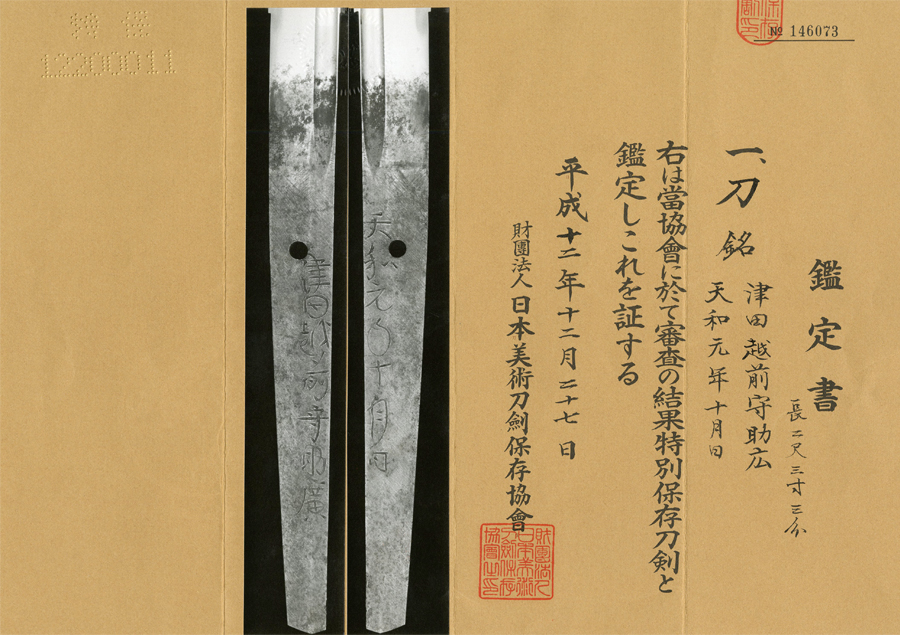 № 146073
鑑定書
長二尺三寸三分
一、刀 銘 津田越前守助広
天和元年十月日
右は當協會に於て審査の結果特別保存刀剣と
鑑定しこれを証する
平成十二年十二月二十七日
財團法人日本美術刀劍保存協會
天和元年十月日
津田越前守助廣
特保
12200011